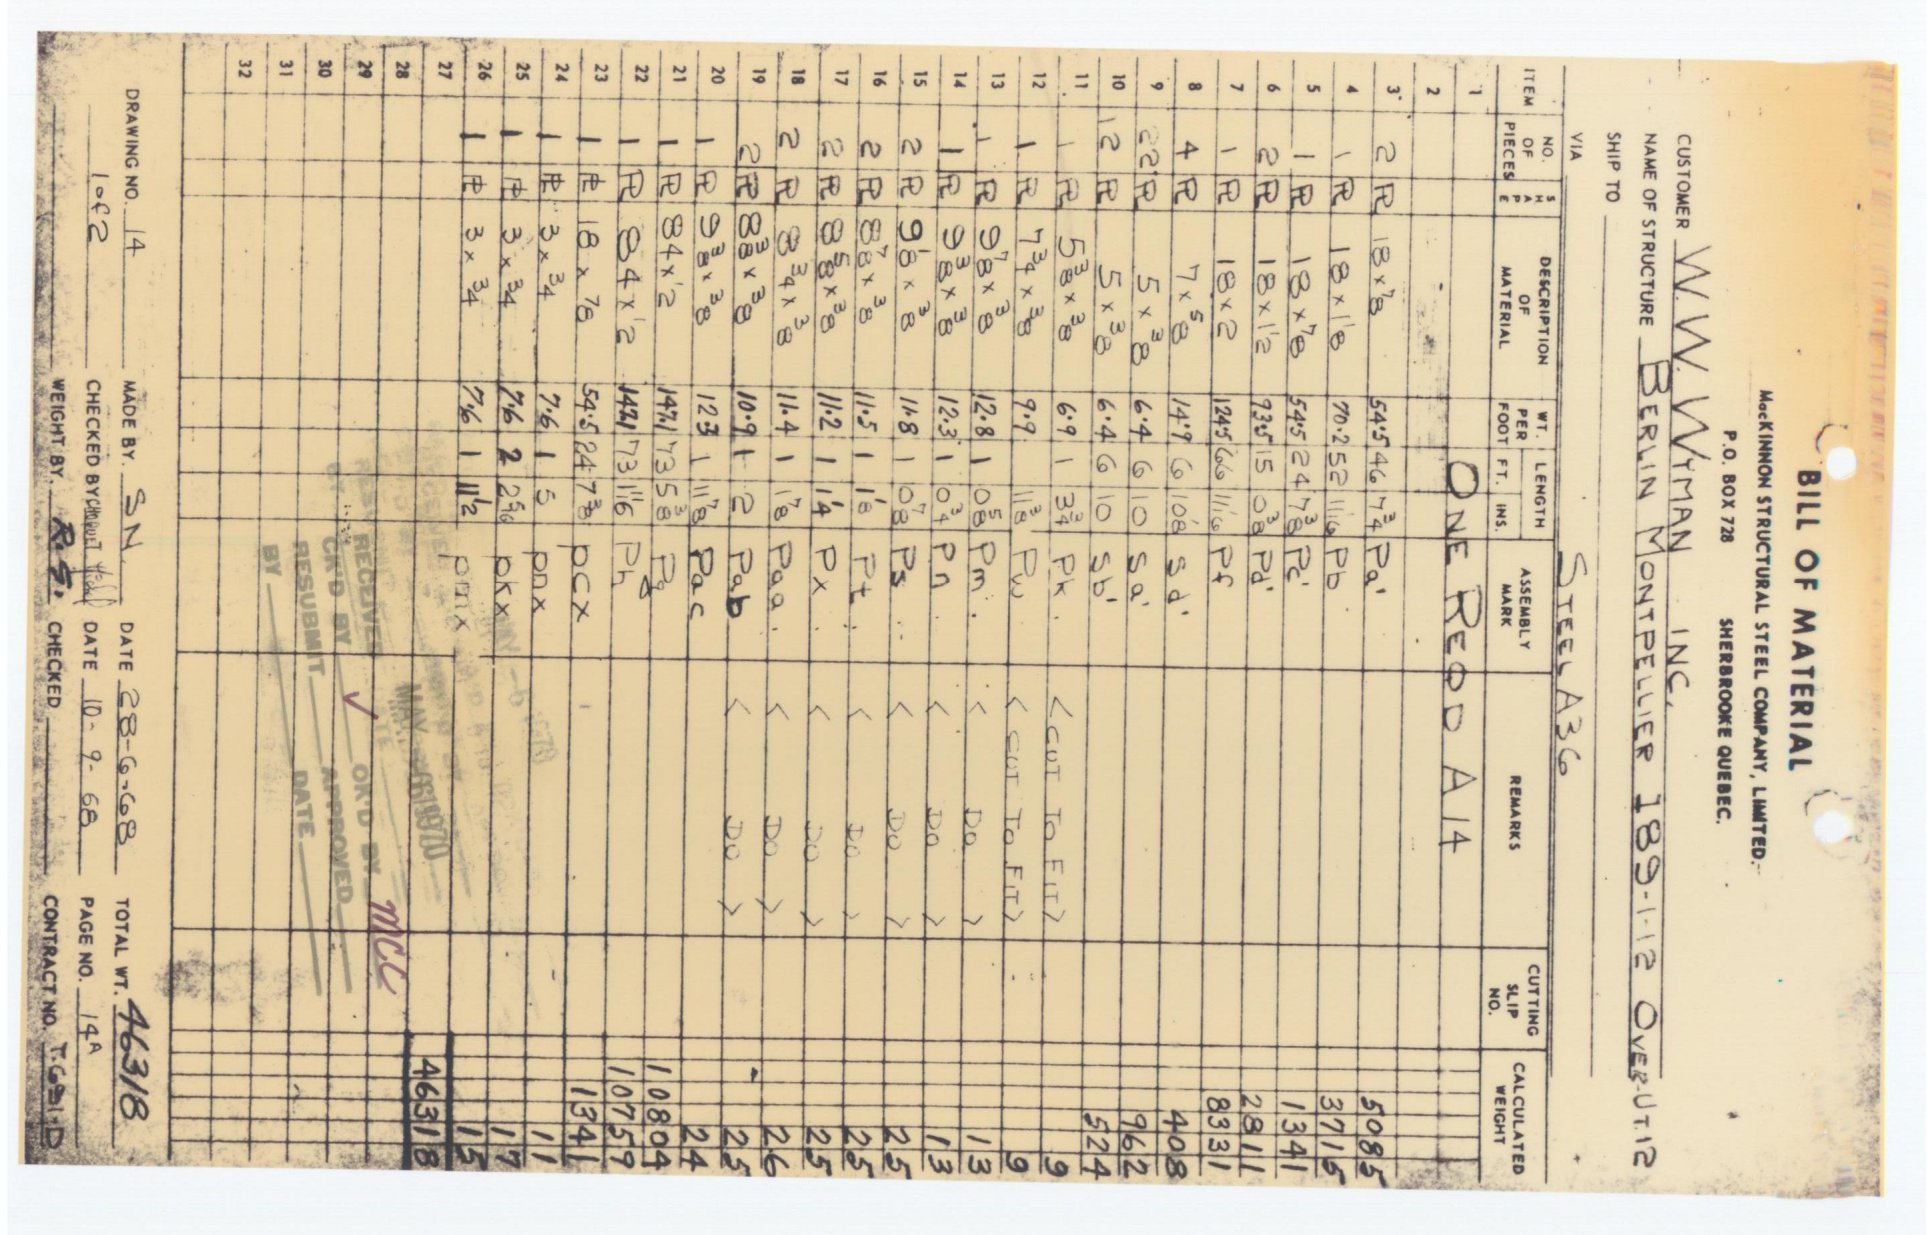 BILL OF MATERIAL
MacKINNON STRUCTURAL STEEL COMPANY, LIMITED.
P.O. BOX 728 SHERBROOKE QUEBEC.
CUSTOMER W. W. WYMAN INC.
NAME OF STRUCTURE BERLIN MONTPELLIER 189-1-12 OVER-UT.12
SHIP TO
VIA STEEL A36
ITEM NO. OF PIECES SHAPE DESCRIPTION OF MATERIAL WT. PER FOOT LENGTH FT. INS. ASSEMBLY MARK REMARKS CUTTING SLIP NO. CALCULATED WEIGHT
1 ONE REQD A14
2
3 2 PL 18 x 7/8 54.5 46 7 3/4 Pa' 5085
4 1 PL 18 x 1 1/8 70.2 52 11 1/16 Pb 3715
5 1 PL 18 x 7/8 54.5 24 7 3/8 Pc' 1341
6 2 PL 18 x 1 1/2 93.5 15 0 3/8 Pd' 2811
7 1 PL 18 x 2 124.5 66 11 1/16 Pf 8331
8 4 PL 7 x 5/8 14.9 6 10 1/8 Sd' 408
9 22 PL 5 x 3/8 6.4 6 10 Sa' 962
10 12 PL 5 x 3/8 6.4 6 10 Sb' 524
11 1 PL 5 3/8 x 3/8 6.9 1 3 3/4 Pk < CUT TO FIT > 9
12 1 PL 7 3/4 x 3/8 9.9 11 3/8 < CUT TO FIT > 9
13 1 PL 9 7/8 x 3/8 12.8 1 0 5/8 Pm < DO > 13
14 1 PL 9 3/8 x 3/8 12.3 1 0 3/4 Pn < DO > 13
15 2 PL 9 1/8 x 3/8 11.8 1 0 7/8 Ps < DO > 25
16 2 PL 8 7/8 x 3/8 11.5 1 1 1/8 Pt < DO > 25
17 2 PL 8 5/8 x 3/8 11.2 1 1 1/4 Px < DO > 25
18 2 PL 8 3/4 x 3/8 11.4 1 1 7/8 Paa < DO > 26
19 2 PL 8 3/8 x 3/8 10.9 1 2 Pab < DO > 25
20 1 PL 9 3/8 x 3/8 12.3 1 11 7/8 Pac 24
21 1 PL 84 x 1/2 147.1 73 5 3/8 Pg 10804
22 1 PL 84 x 1/2 147.1 73 1 1/16 Ph 10759
23 1 PL 18 x 7/8 54.5 24 7 3/8 pcx 1341
24 1 PL 3 x 3/4 7.6 1 5 pnx 11
25 1 PL 3 x 3/4 7.6 2 pkx 17
26 1 PL 3 x 3/4 7.6 1 11 1/2 pmx 15
27 46318
28
29
30
31
32
MAY 6 1970
RECEIVED
CK'D BY OK'D BY MCC
RESUBMIT APPROVED
BY DATE
DRAWING NO. 14 MADE BY. SN DATE 28-6-68 TOTAL WT. 46318
1 OF 2 CHECKED BY DATE 10-9-68 PAGE NO. 14A
WEIGHT BY. R.S. CHECKED CONTRACT NO. T.691-D